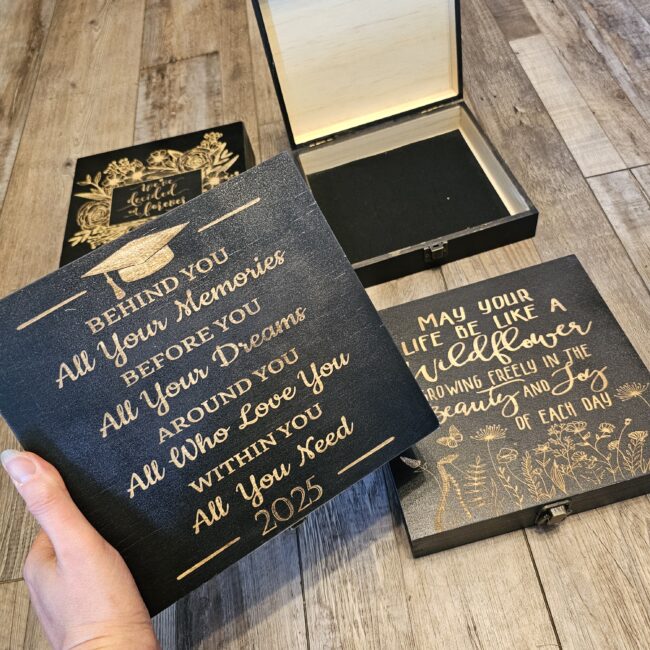 BEHIND YOU
All Your Memories
BEFORE YOU
All Your Dreams
AROUND YOU
All Who Love You
WITHIN YOU
All You Need
2025
MAY YOUR
LIFE BE LIKE A
Wildflower
GROWING FREELY IN THE
Beauty AND Joy
OF EACH DAY
We
decided
on forever